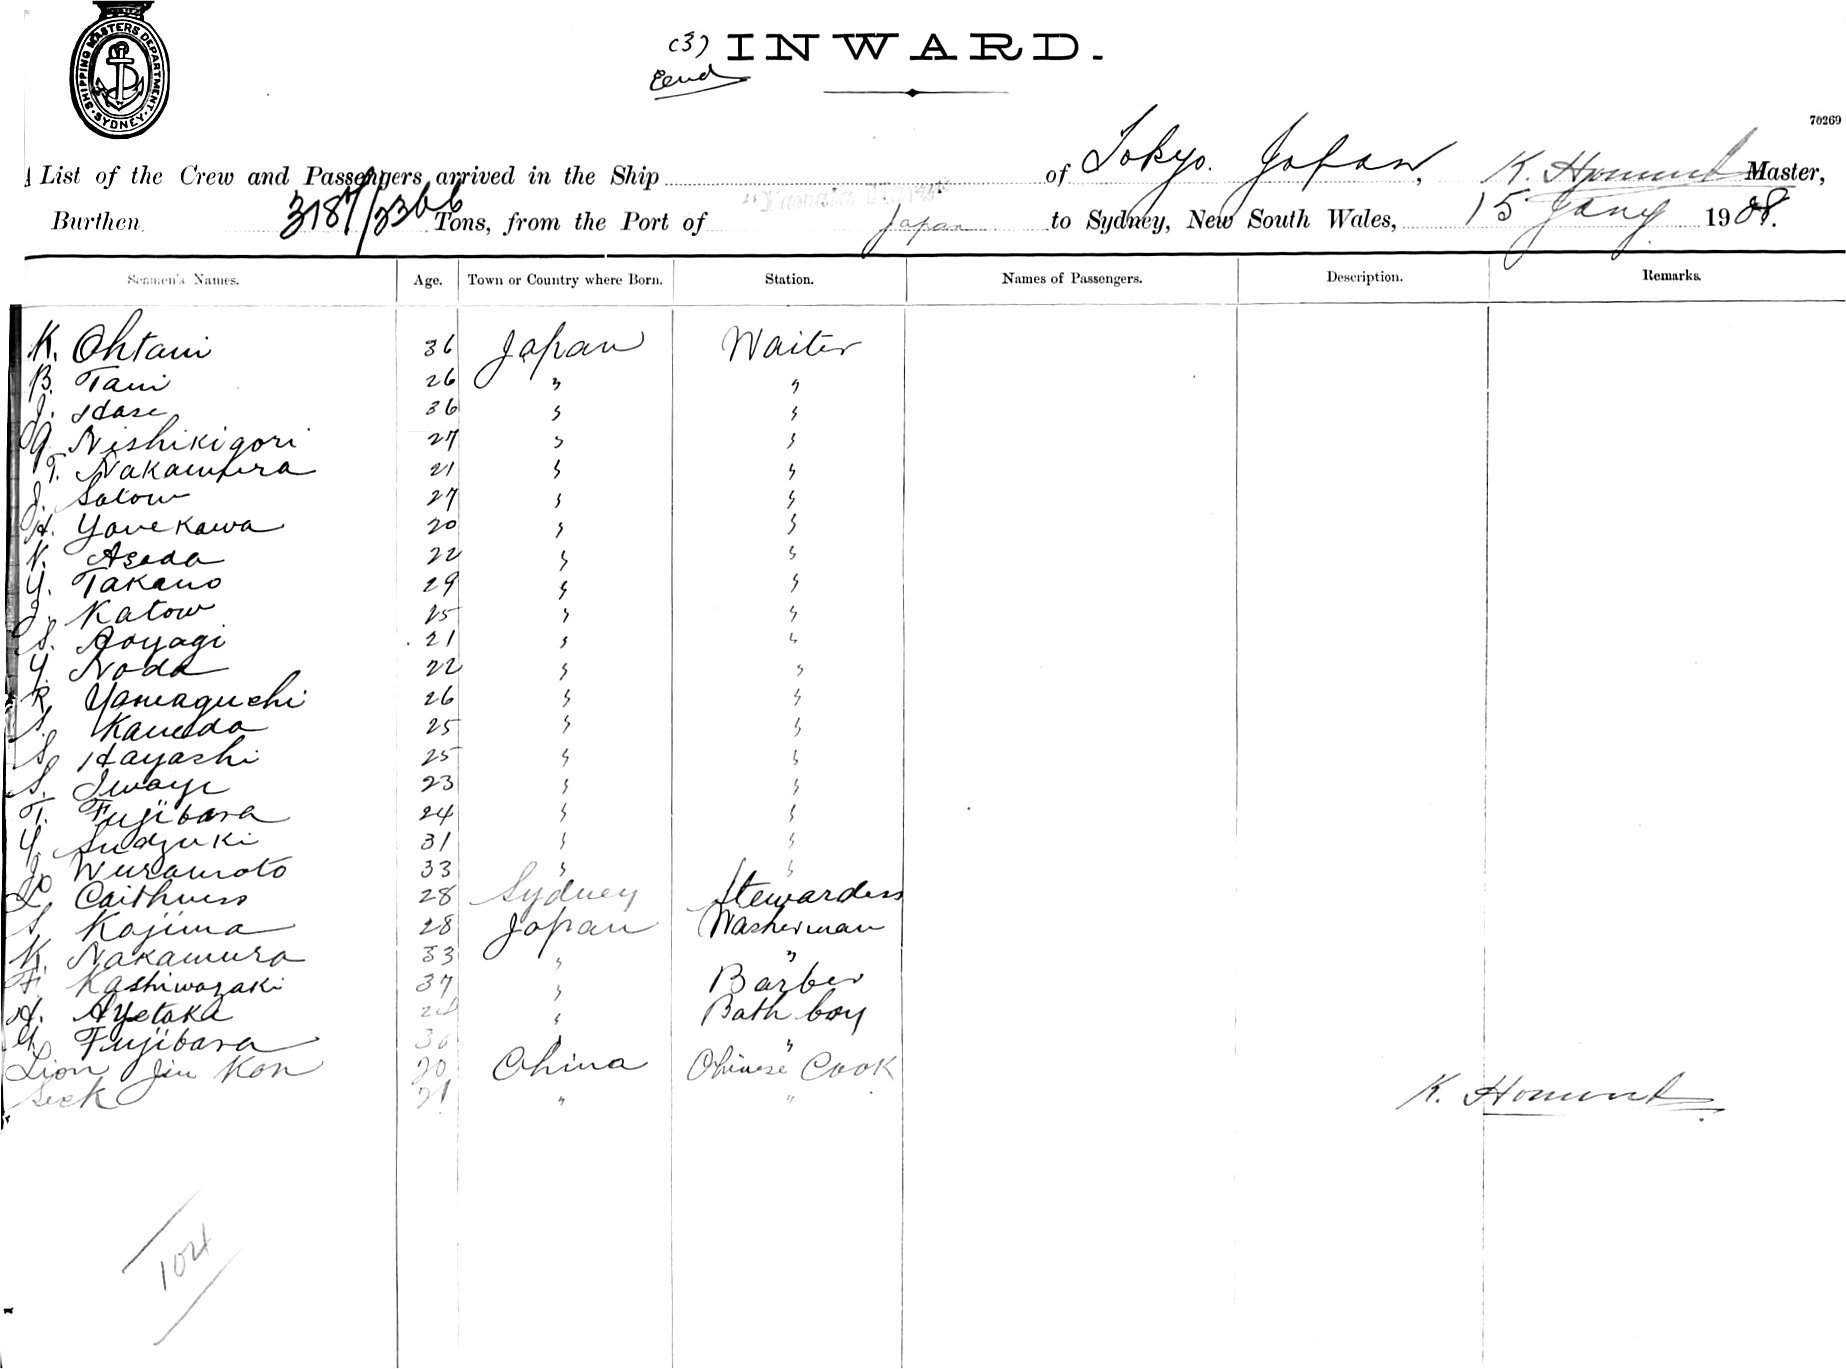 SHIPPING MASTERS DEPARTMENT
SYDNEY
(3) INWARD.
End
70269
List of the Crew and Passengers arrived in the Ship of Tokyo. Japan, K. Homma Master,
Burthen 3187/3366 Tons, from the Port of Japan to Sydney, New South Wales, 15 Jany 1908.
Seamen's Names. Age. Town or Country where Born. Station. Names of Passengers. Description. Remarks.
K. Ohtani 36 Japan Waiter
B. Tani 26 " "
J. Hase 36 " "
G. Nishikigori 27 " "
T. Nakamura 21 " "
J. Satow 27 " "
H. Yonekawa 20 " "
N. Asada 22 " "
Y. Takano 29 " "
J. Katow 25 " "
S. Aoyagi 21 " "
Y. Noda 22 " "
K. Yamaguchi 26 " "
S. Kaneda 25 " "
S. Hayashi 25 " "
S. Iwaye 23 " "
T. Fujibara 24 " "
Y. Sudzuki 31 " "
J. Wuramoto 33 " "
L. Caithness 28 Sydney Stewardess
S. Kojima 28 Japan Washerman
K. Nakamura 33 " "
F. Kashiwazaki 37 " Barber
H. Ayetaka " Bath boy
Fujibara 30 " "
Lion Jin Kon 20 China Chinese Cook
Seek 21 " "
K. Homma
104